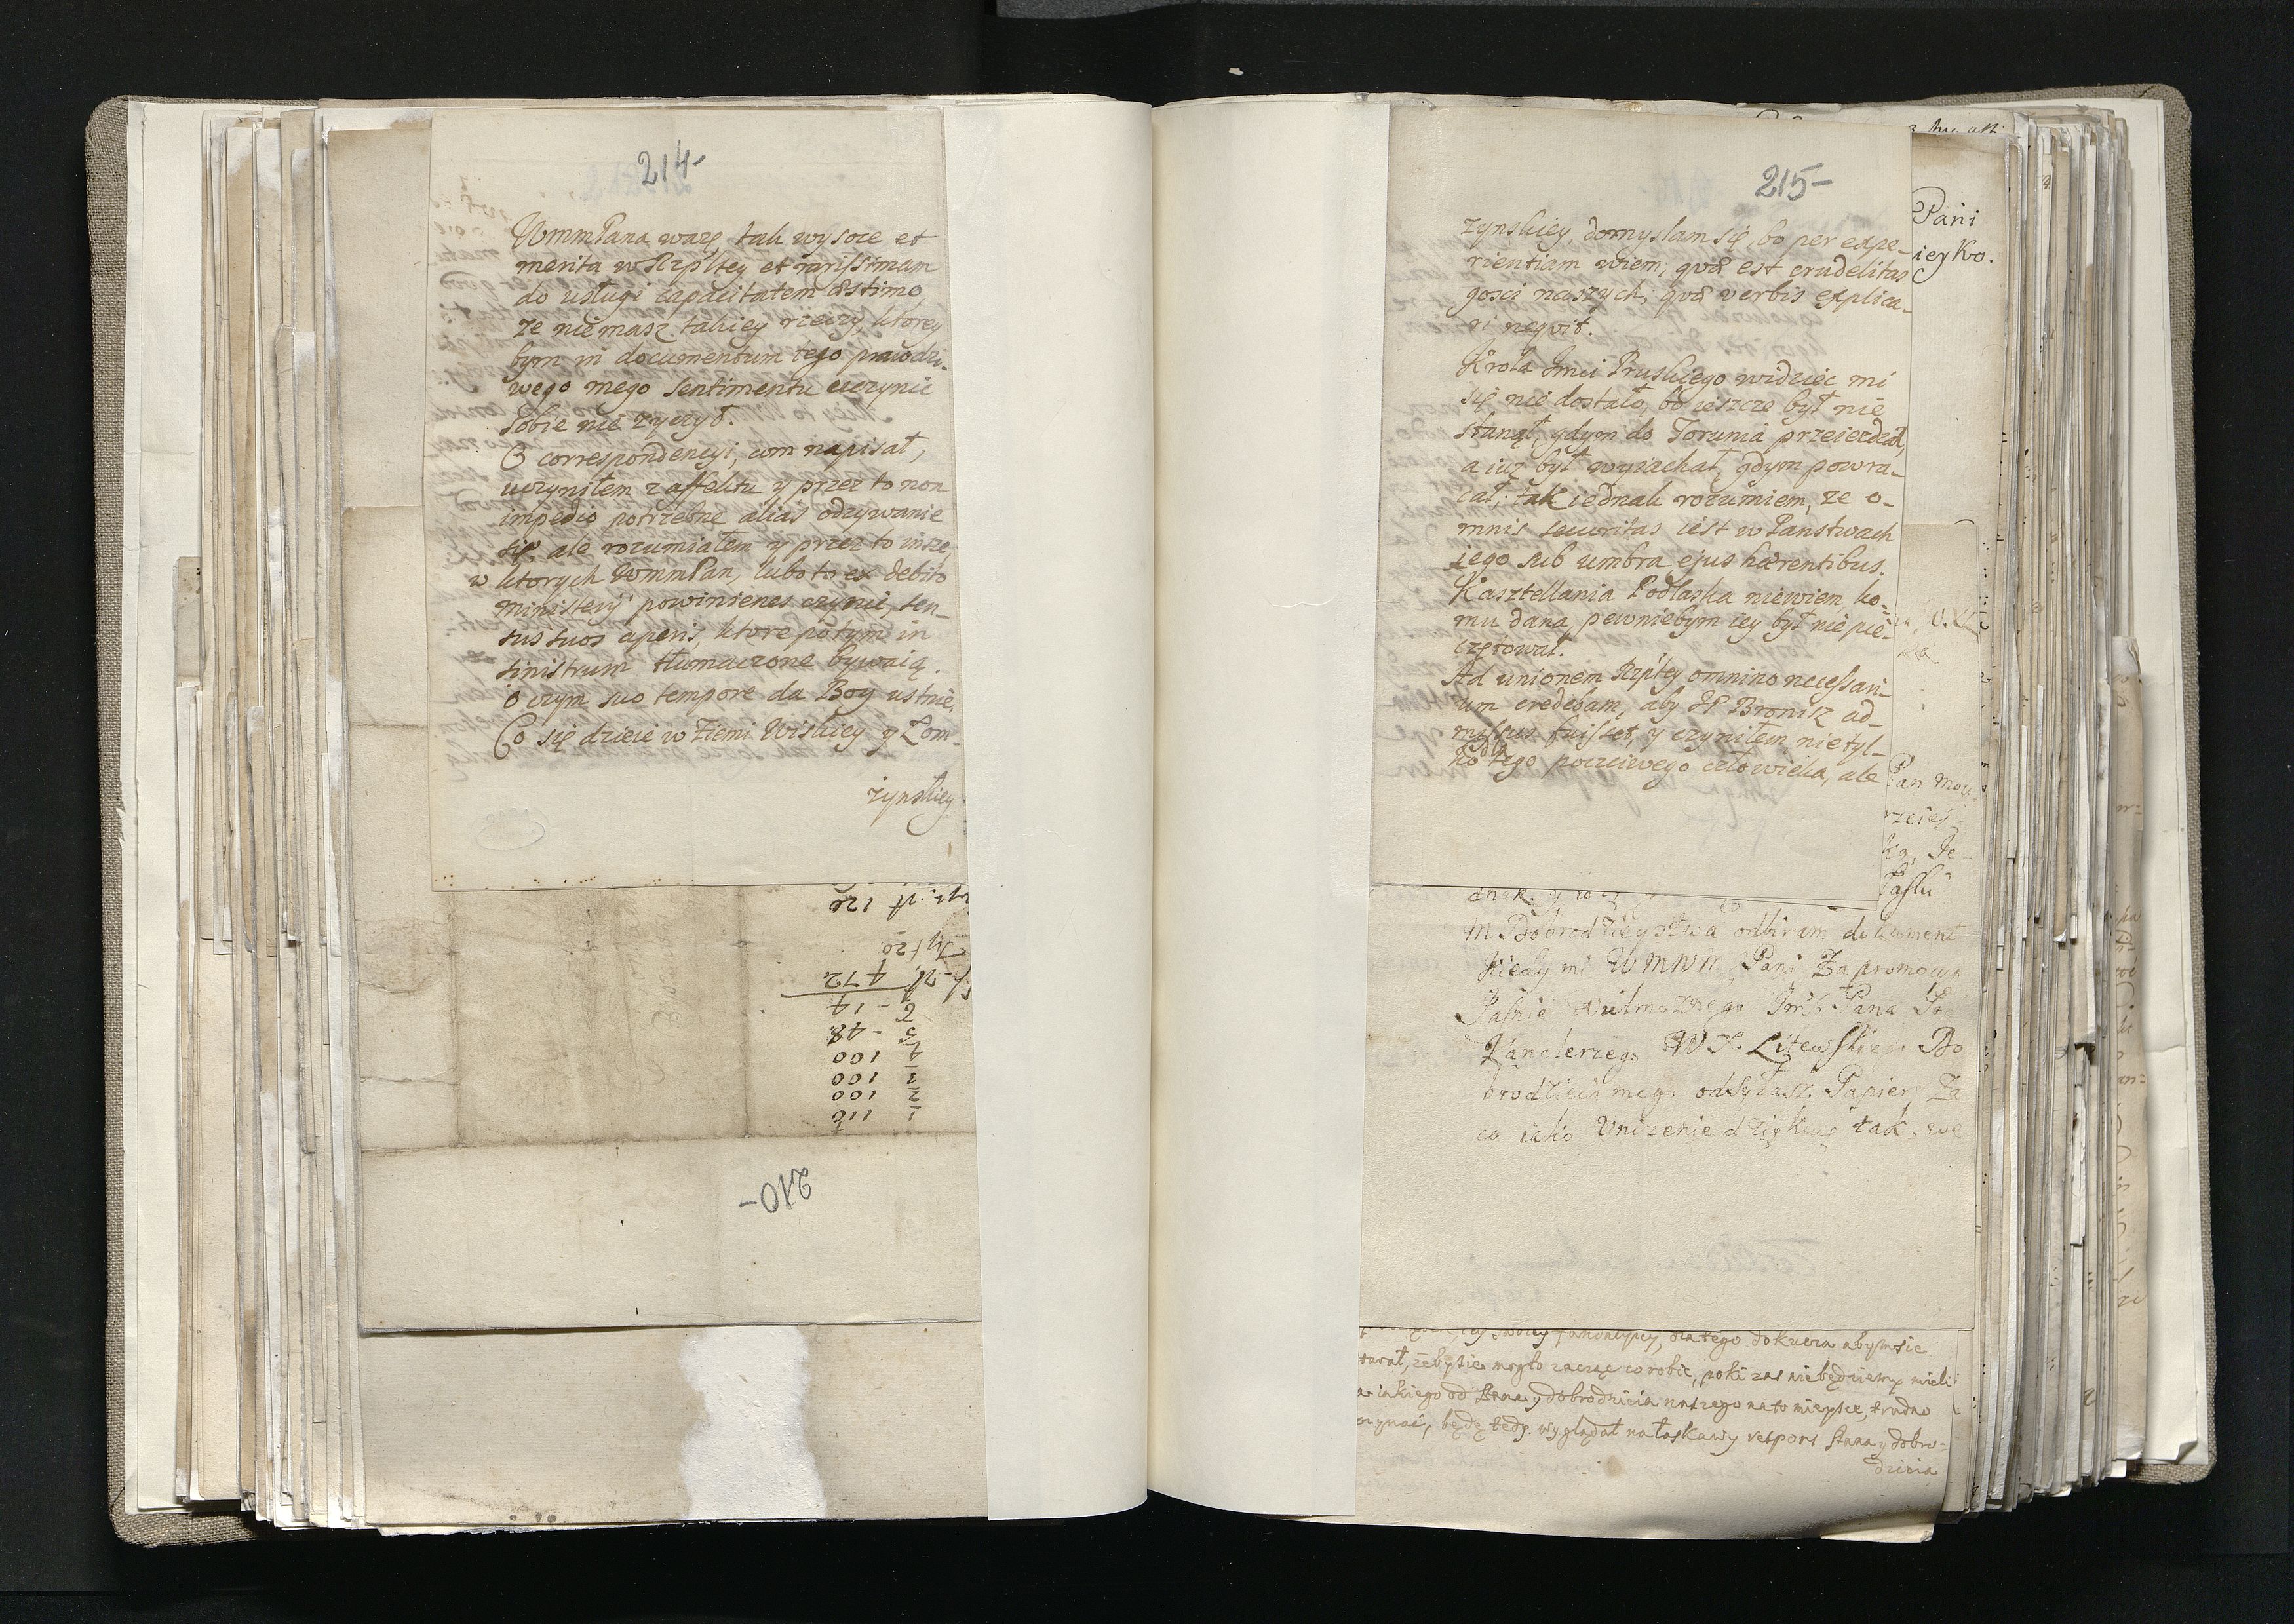 214-
WmmPana wazę, tak wysoce et
merita w Rzpltey et rarissimam
do usługi capacitatem æstimo,
ze niemasz takiey rzeczy, ktorey
bym in documentum tego prawdzi-
wego mego sentimentu uczynic
sobie nie zyczył.
O correspondencyi, com napisał,
uczyniłem z affektu y przez to non
impedio potrzebne alias odzywanie
się, ale rozumiałem y przez to insze,
w ktorych WmmPan, lubo to ex debito
ministerij powinienes czynic, sen-
sus suos aperis, ktore potym in
sinistrum tłumaczone bywaią.
O czym suo tempore da Bog ustnie.
Co się dzieie w Ziemi Wiskiey y Łom-
zynskiey
1 116
2 100
3 100
4 100
5 - 48
6 - 14
472
210-
215-
zynskiey, domyslam się, bo per expe-
rientiam wiem, quæ est crudelitas
gosci naszych, quæ verbis explica-
ri nequit.
Krola Jmci Pruskiego widziec mi
się nie dostało, bo ieszcze był nie
stanął, gdym do Torunia przeiezdzał,
a iuz był wyiachał, gdym powra-
cał; tak iednak rozumiem, ze o-
mnis securitas iest w Panstwach
iego sub umbra ejus hærentibus.
Kasztellania Podlaska niewiem ko-
mu dana, pewniebym iey był nie pie-
czętował.
Ad unionem Rzpltey omnino necessari-
um credebam, aby JP Bronisz ad-
missus fuisset, y czyniłem nietyl-
ko dla tego poczciwego człowieka, ale
Pani
ieyko.
Pan Moy
m Dobrodzieystwa odbiram dokument
kiedy mi WMWM Pani Za promowa
Jasnie Wielmoznego Jmsci Pana
Kanclerzego W X. Litewskiego Do
brodzieia mego odsyłasz Papier, Za
co iako Unizenie dziękuię tak, we
swoiey, dlatego dokucza abymsie
starał, zebysie mogło zacząc co robic, poki zas niebędziemy mieli
iakiego od Pana y dobrodzieia naszego na to mieysce, trudno
będę tedy wyglądał na łaskawy respons Pana y dobro-
dzieia